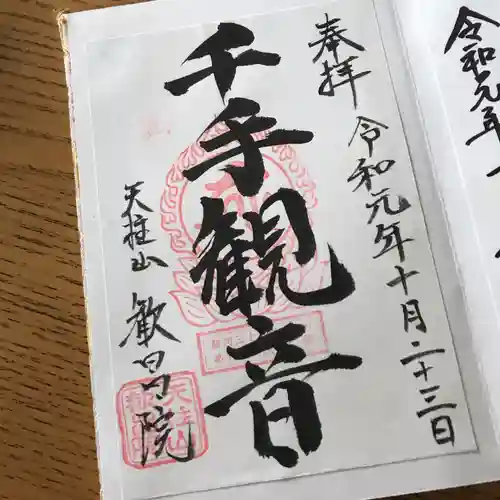 奉拝
令和元年十月二十三日
千手観音
天柱山
歓昌院
天柱山
令和元年